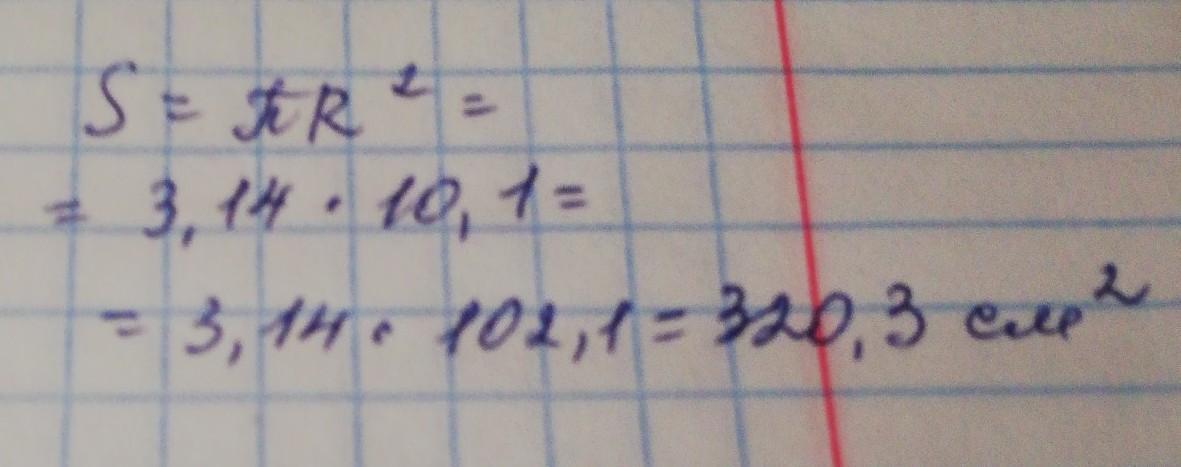 S = πR² =
= 3,14 · 10,1 =
= 3,14 · 102,1 = 320,3 см²